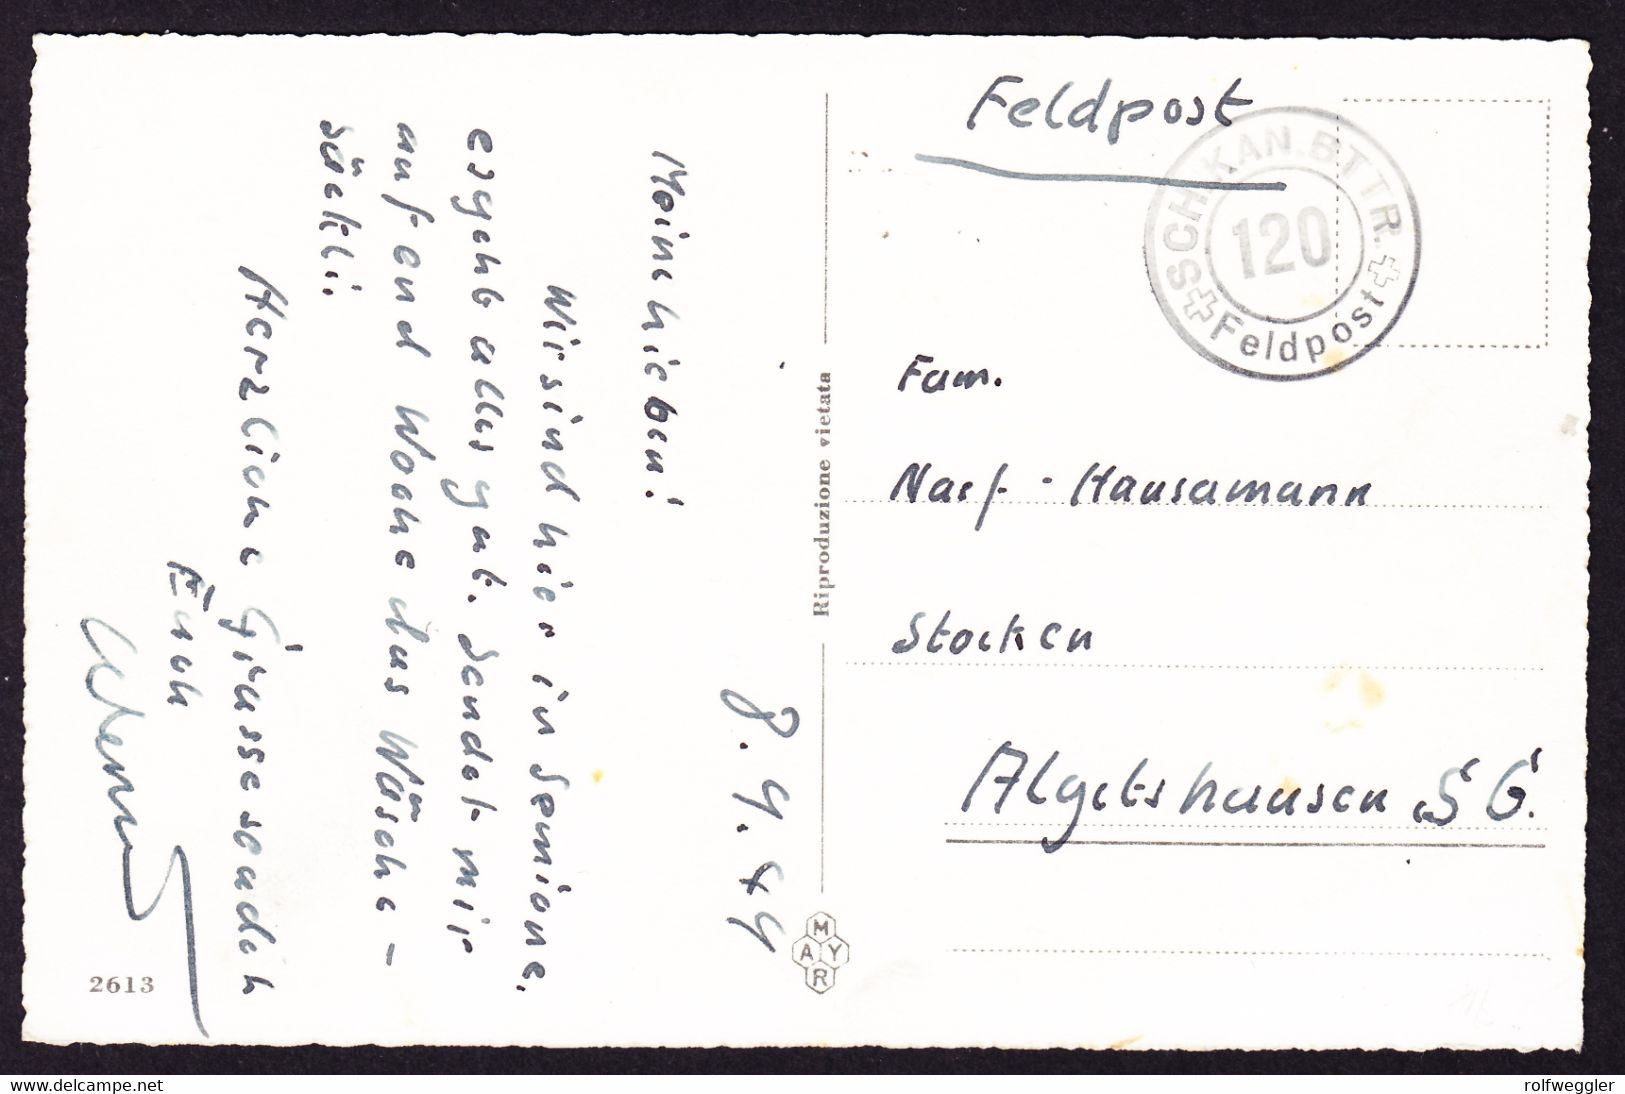 Feldpost
SCH. KAN. BTTR.
120
Feldpost
Fam.
Naef - Hausamann
Stocken
Algetshausen S G.
8. 9. 44
Meine Lieben!
Wir sind hier in Semione.
es geht alles gut. Sendet mir
auf end Woche das Wäsche-
säckli.
Herzliche Grüsse sendet
Euch
Werner
Riproduzione vietata
MAYR
2613
rolfweggler